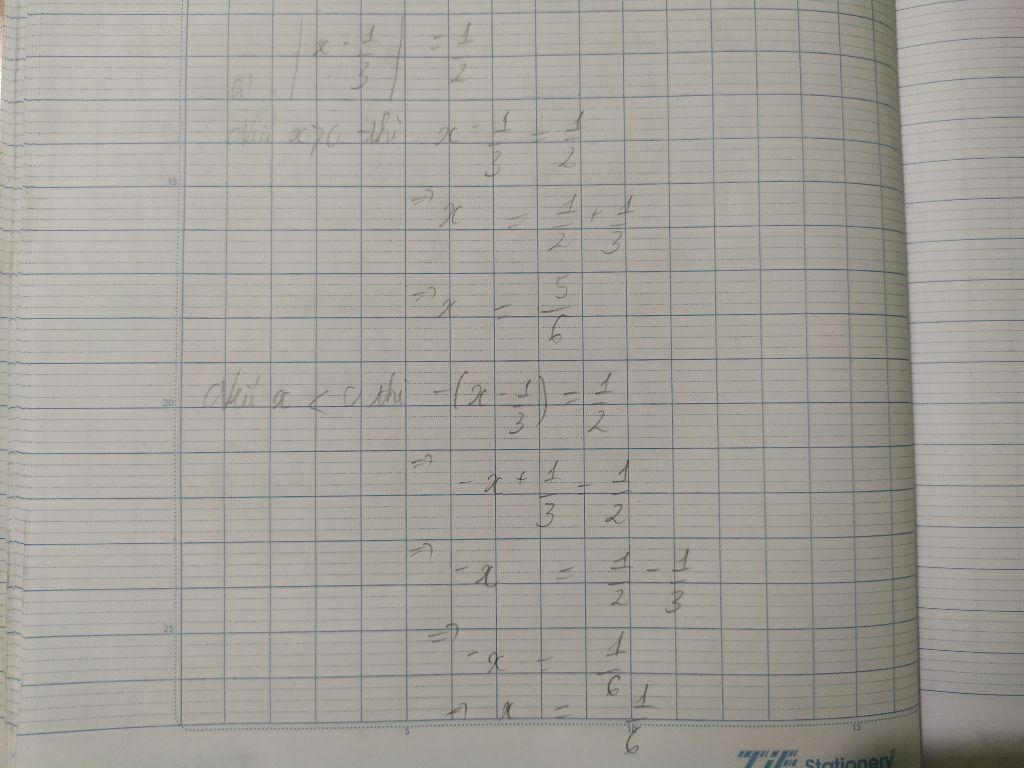 a) |x - 1/3| = 1/2
Nếu x > 0 thì x - 1/3 = 1/2
15
=> x = 1/2 + 1/3
=> x = 5/6
20
Nếu x < 0 thì -(x - 1/3) = 1/2
=> -x + 1/3 = 1/2
=> -x = 1/2 - 1/3
25
=> -x = 1/6
=> x = 1/6
5 10 15
Stationery